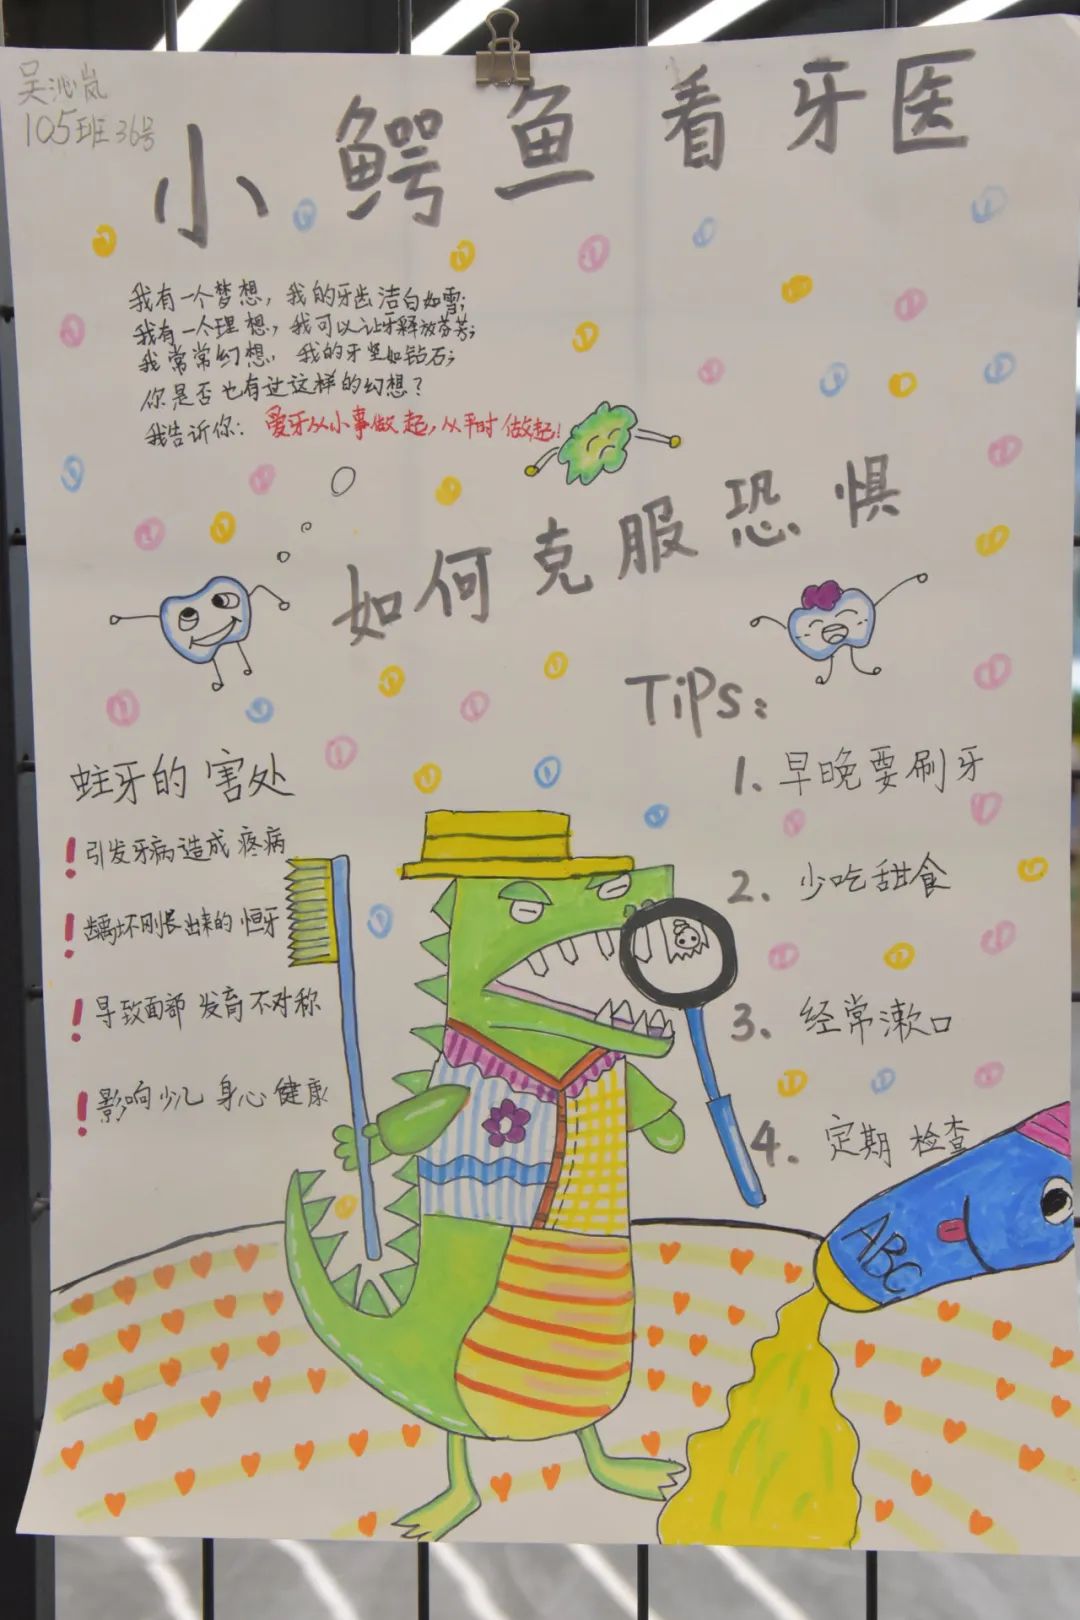 吴沁岚
105班36号
小鳄鱼看牙医
我有一个梦想，我的牙齿洁白如雪；
我有一个理想，我可以让牙释放芬芳；
我常常幻想，我的牙坚如钻石；
你是否也有过这样的幻想？
我告诉你：爱牙从小事做起，从平时做起！
如何克服恐惧
Tips：
1.早晚要刷牙
2.少吃甜食
3.经常漱口
4.定期检查
蛀牙的害处
！引发牙病造成疼病
！龋坏刚长出来的恒牙
！导致面部发育不对称
！影响少儿身心健康
ABC